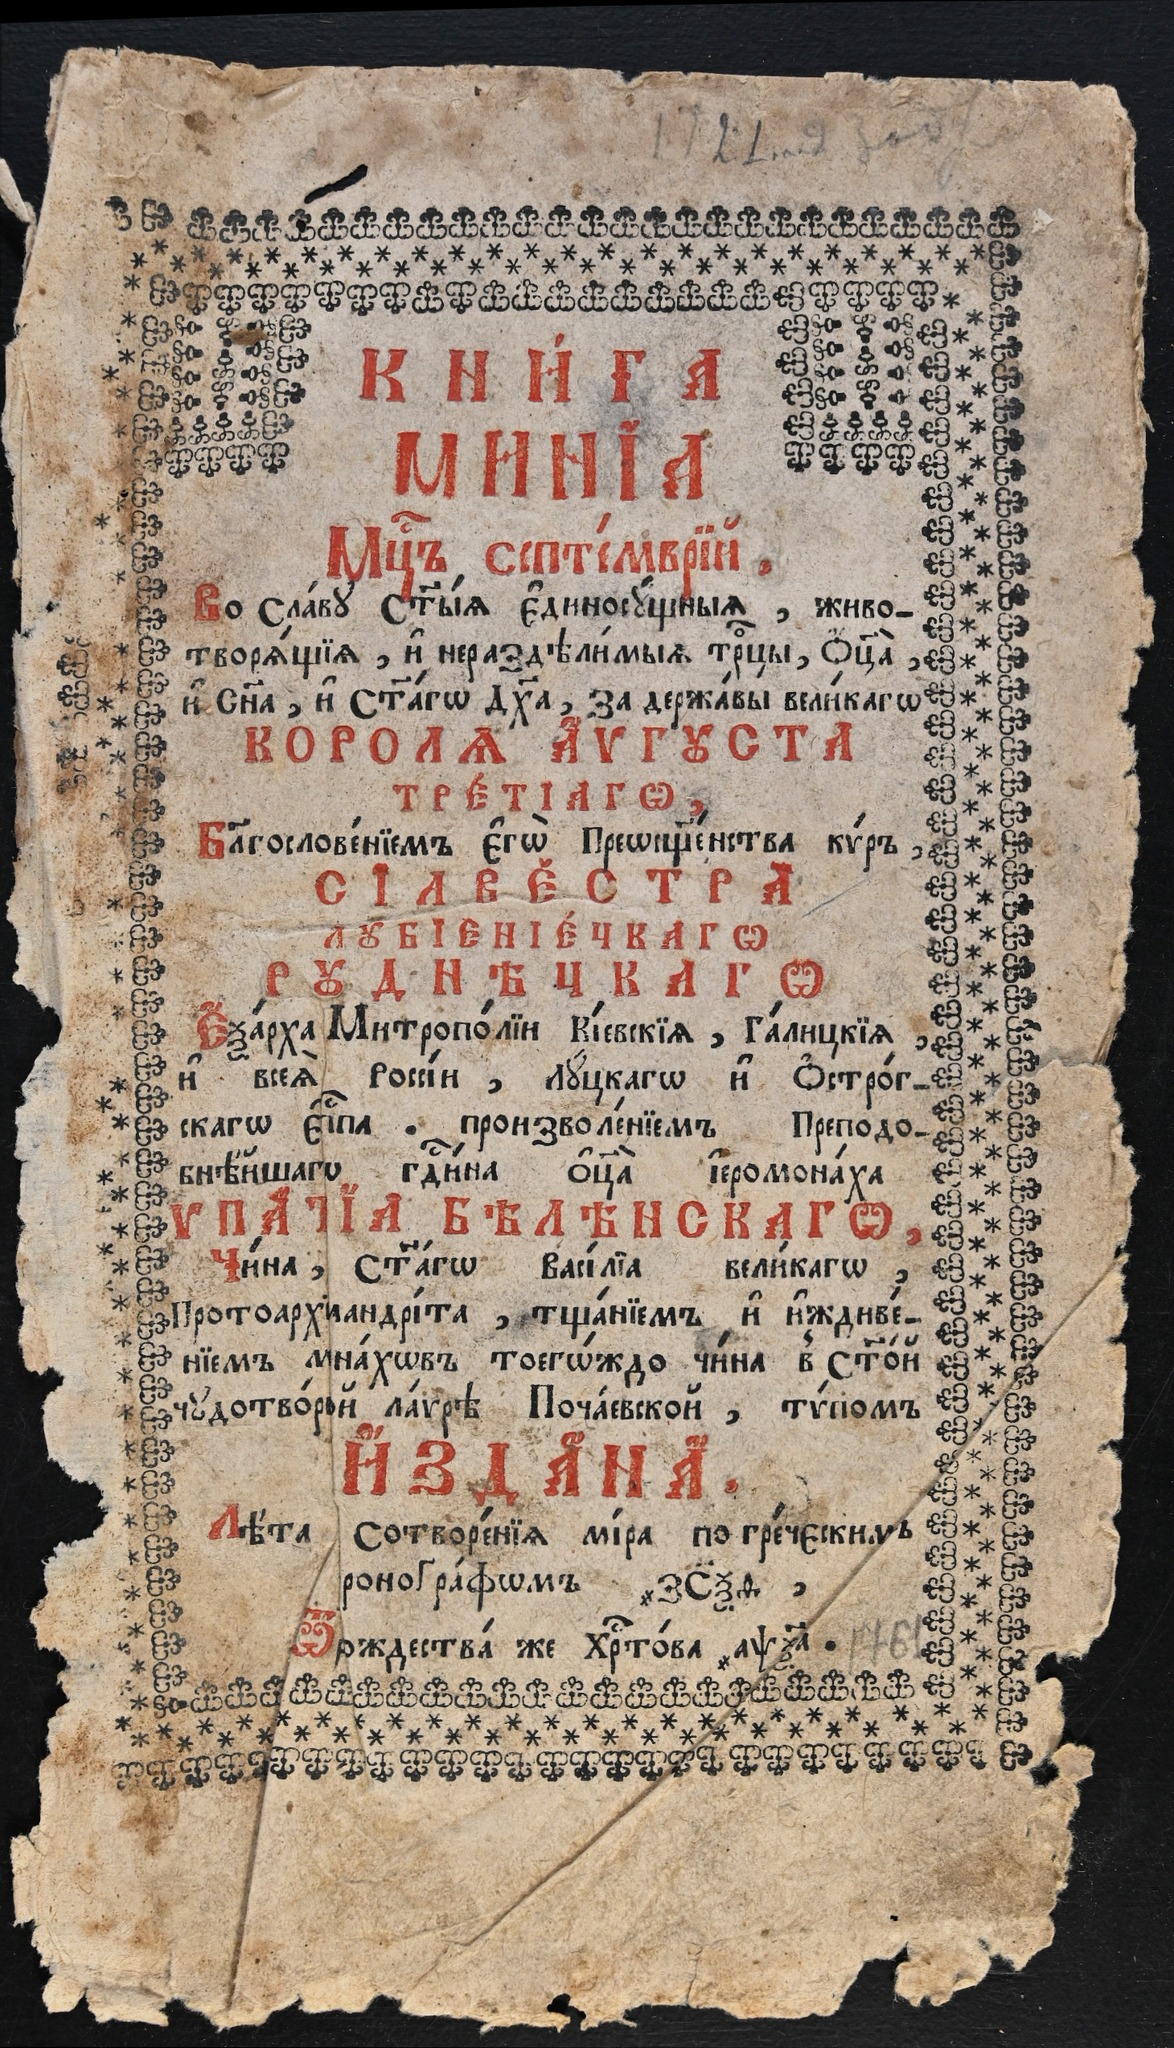 КНИ́ГА
МИНІ́А
Мцⷭ҇ъ септе́мврїй.
Во Сла́вꙋ Ст҃ы́ѧ Є҆диносꙋ́щныѧ, живо-
творѧ́щїѧ, и҆ нераздѣли́мыѧ трⷪ҇цы, Ѻ҆ц҃а̀,
и҆ Сн҃а, и҆ Ст҃а́гѡ Дх҃а, за держа́вы вели́кагѡ
КОРОЛѦ А҆́ѴГꙊСТА
ТРЕ́ТІАГѠ,
Блг҃ослове́нїемъ Є҆гѡ̀ Преѡсщ҃е́нства кѵ́ръ,
СІЛВЕ́СТРА
ЛꙊБІЕНІЕ́ЧКАГѠ
РꙊДНѢЧКАГѠ
Є҆ѯа́рха Митропо́лїи Кі́евскїѧ, Га́лицкїѧ,
и҆ всеѧ̀ Россі́и, лꙋ́цкагѡ и҆ Ѻ҆стро́г-
скагѡ є҆пⷭ҇па. произволе́нїемъ Преподо-
бнѣ́йшагѡ гдⷭ҇и́на ѻ҆ц҃а̀ і҆еромона́ха
ѴПА́ТЇА БѢЛѢНСКАГѠ,
Чи́на, Ст҃а́гѡ Васі́лїа вели́кагѡ,
Протоархиандрі́та, тща́нїемъ и҆ и҆ждиве́-
нїемъ мна́хѡвъ тоегѡ́ждо чи́на в̾ Ст҃о́й
чꙋдотво́рной ла́ѵрѣ Поча́евской, тѵ́помъ
И҆ЗДА́НА.
Лѣ́та Сотворе́нїѧ мі́ра по гре́ческимъ
роногра́фѡмъ ҂зсѯѳ,
Ѿ рждества́ же Хрⷭ҇то́ва ҂аѱѯ҃а.
1761